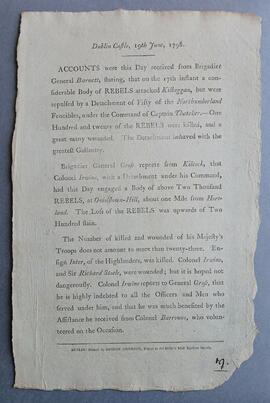 Dublin Castle, 19th June, 1798.
ACCOUNTS were this Day received from Brigadier
General Barnett, stating, that on the 17th instant a con-
siderable Body of REBELS attacked Kilbeggan, but
were repulsed by a Detachment of Fifty of the Northumberland
Fencibles, under the Command of Captain Thatcher.—One
Hundred and twenty of the REBELS were killed, and a
great many wounded. The Detachment behaved with the
greatest Gallantry.
Brigadier General Grose reports from Kilcock, that
Colonel Irwine, with a Detachment under his Command,
had this Day engaged a Body of above Two Thousand
REBELS, at Ovidstown-Hill, about one Mile from Hort-
land. The Loss of the REBELS was upwards of Two
Hundred slain.
The Number of killed and wounded of his Majesty's
Troops does not amount to more than twenty-three. En-
sign Inter, of the Highlanders, was killed. Colonel Irwine,
and Sir Richard Steele, were wounded; but it is hoped not
dangerously. Colonel Irwine reports to General Grose, that
he is highly indebted to all the Officers and Men who
served under him, and that he was much benefited by the
Assistance he received from Colonel Burrows, who volun-
teered on the Occasion.
DUBLIN: Printed by GEORGE GRIERSON, Printer to the King's Most Excellent Majesty.